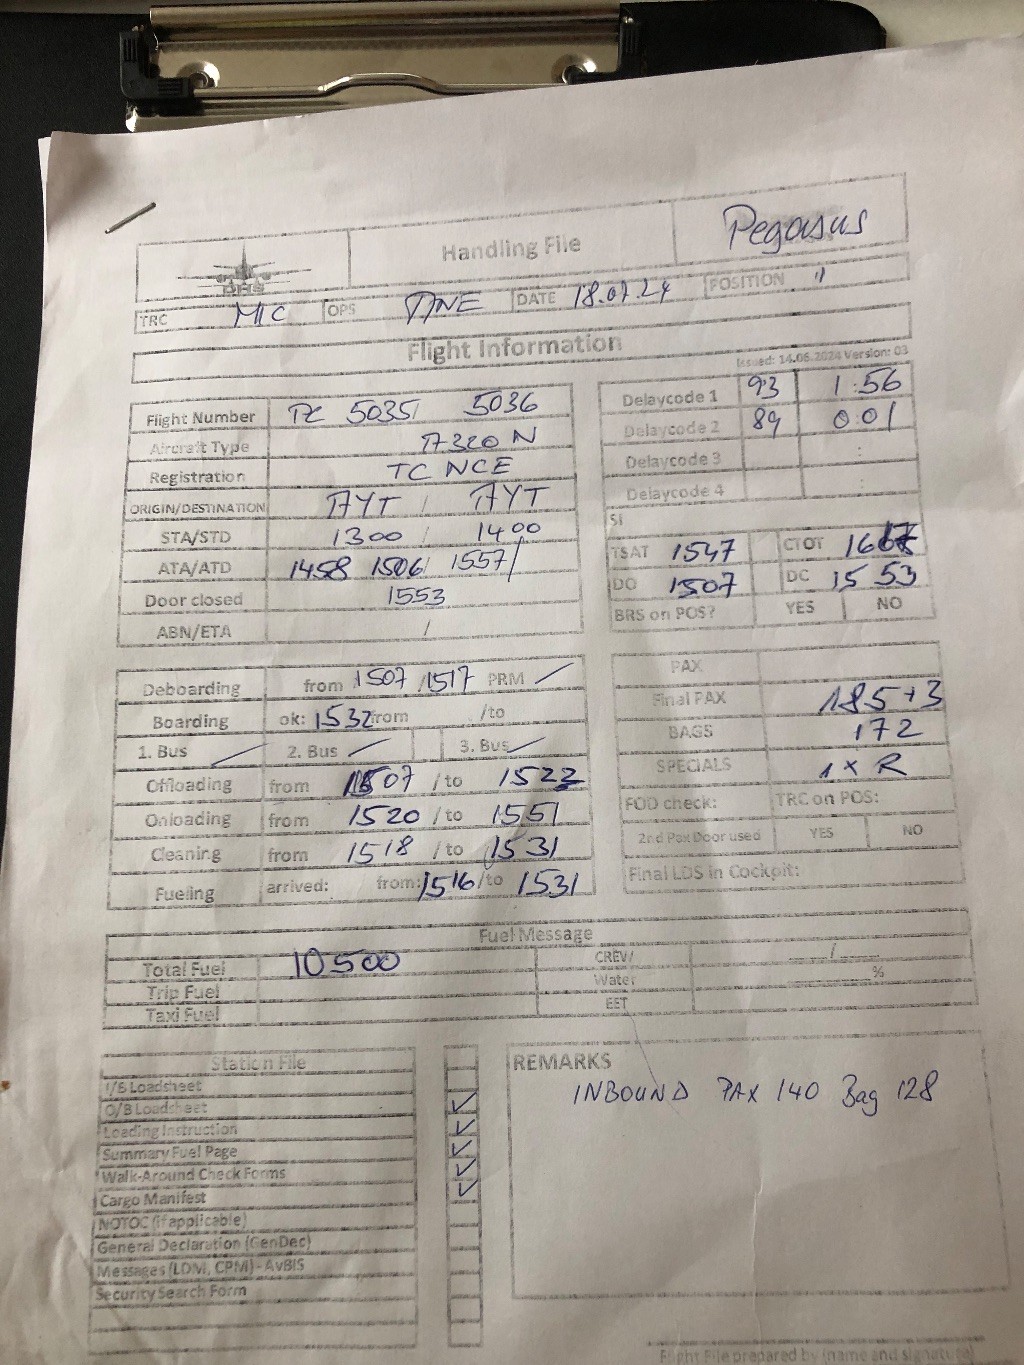 Handling File Pegasus
TRC MIC OPS DATE 18.07.24 POSITION
Flight Information
Issued: 14.06.2024 Version: 03
Flight Number PC 5035/ 5036
Aircraft Type A320N
Registration TC NCE
ORIGIN/DESTINATION AYT / AYT
STA/STD 1300 / 1400
ATA/ATD 1458 1506/ 1557/
Door closed 1553
ABN/ETA /
Delaycode 1 93 1:56
Delaycode 2 89 0:01
Delaycode 3 :
Delaycode 4 :
SI
TSAT 1547 CTOT
DO 1507 DC 1553
BRS on POS? YES NO
Deboarding from 1507 /1517 PRM
Boarding ok: 1532 from /to
1. Bus 2. Bus 3. Bus
Offloading from 1507 /to 1522
Onloading from 1520 /to 1551
Cleaning from 1518 /to 1531
Fueling arrived: from: 1516 /to 1531
PAX
Final PAX 185+3
BAGS 172
SPECIALS 1x R
FOD check: TRC on POS:
2nd Pax Door used YES NO
Final LDS in Cockpit:
Fuel Message
Total Fuel 10500 CREW /
Trip Fuel Water %
Taxi Fuel EET
Station File
I/B Loadsheet
O/B Loadsheet
Loading Instruction
Summary Fuel Page
Walk-Around Check Forms
Cargo Manifest
NOTOC (if applicable)
General Declaration (GenDec)
Messages (LDM, CPM) - AvBIS
Security Search Form
REMARKS
INBOUND PAX 140 Bag 128
Flight File prepared by (name and signature)